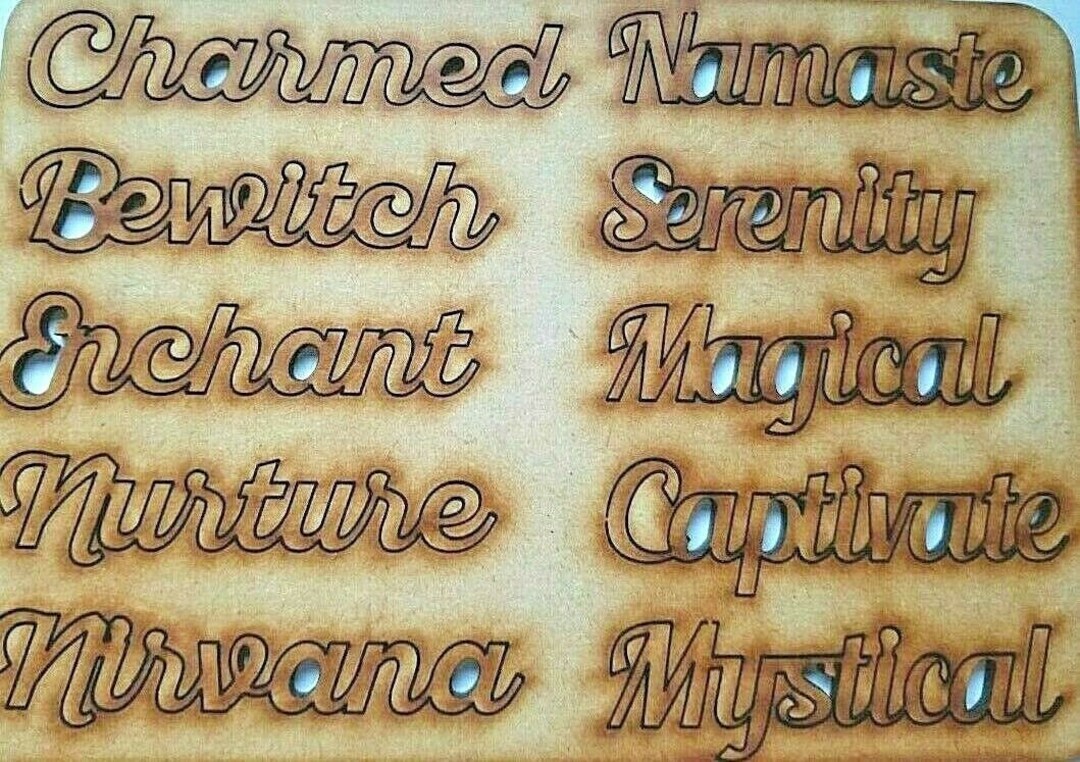 Charmed Namaste
Bewitch Serenity
Enchant Magical
Nurture Captivate
Nirvana Mystical